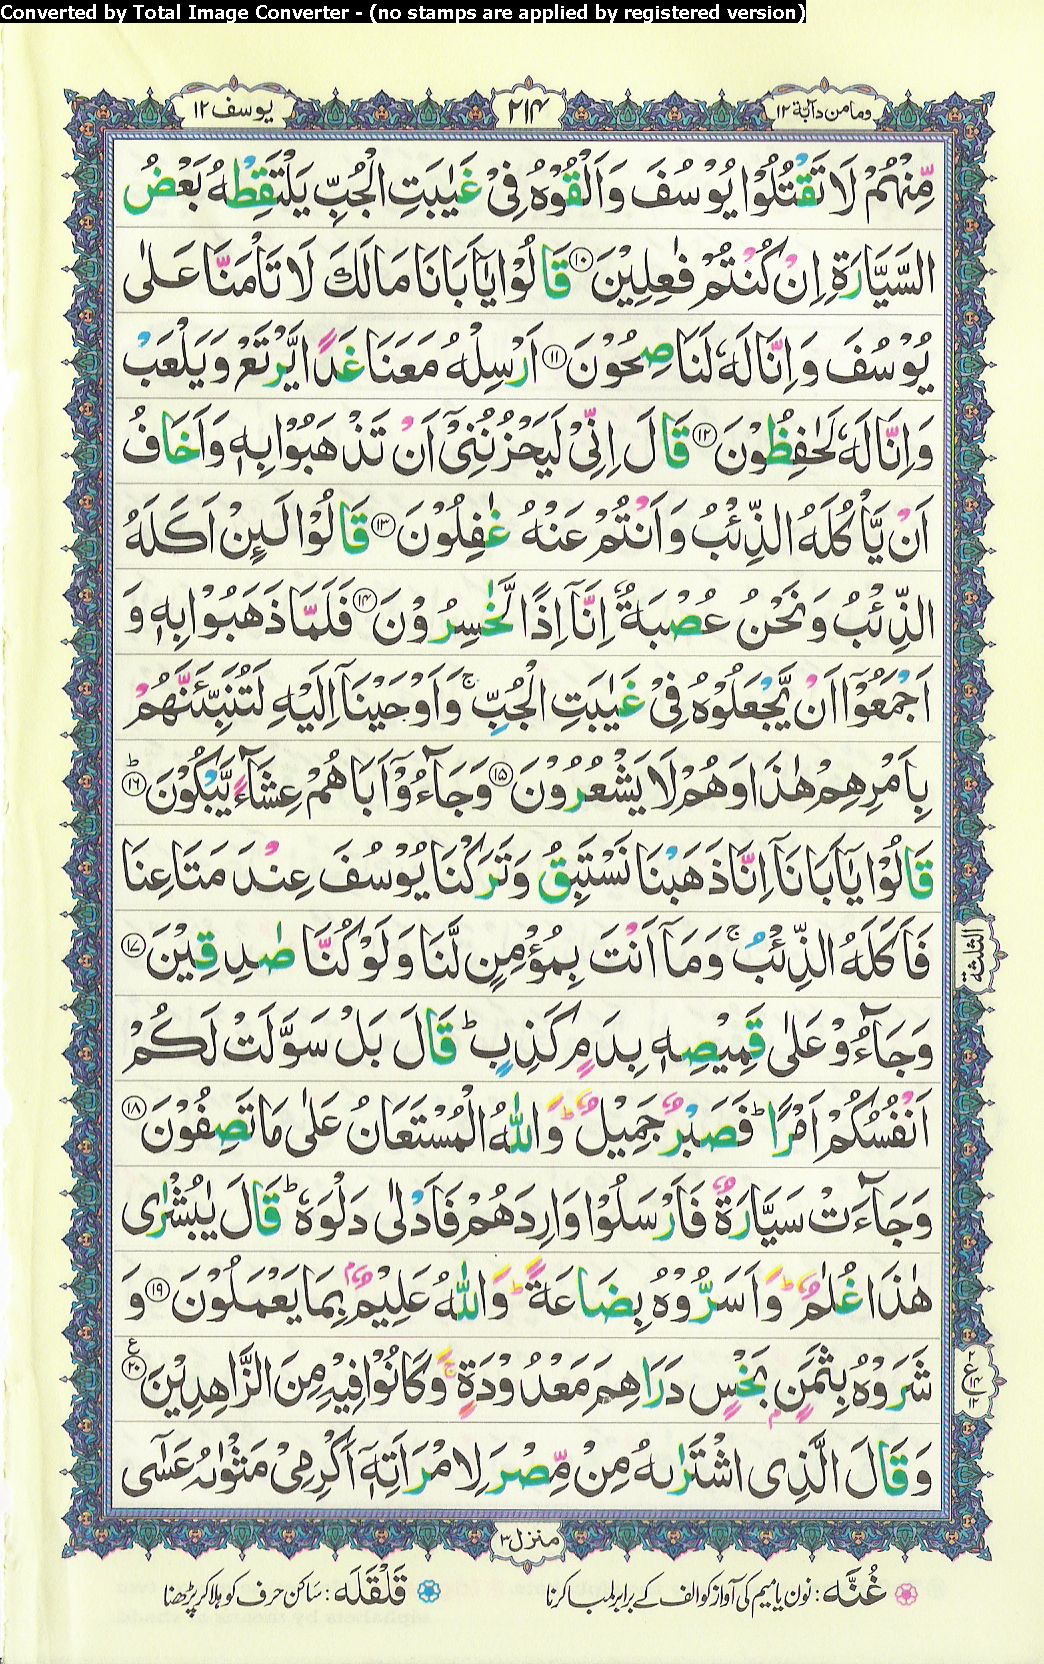 Converted by Total Image Converter - (no stamps are applied by registered version)
وما من دآبّة ١٢
٢١۴
یوسف ١٢
مِّنْهُمْ لَا تَقْتُلُوْا يُوْسُفَ وَاَلْقُوْهُ فِيْ غَيٰبَتِ الْجُبِّ يَلْتَقِطْهُ بَعْضُ
السَّيَّارَةِ اِنْ كُنْتُمْ فٰعِلِيْنَ ١٠ قَالُوْا يٰٓاَبَانَا مَالَكَ لَا تَاْمَنَّا عَلٰى
يُوْسُفَ وَاِنَّا لَهٗ لَنَاصِحُوْنَ ١١ اَرْسِلْهُ مَعَنَا غَدًا يَّرْتَعْ وَيَلْعَبْ
وَاِنَّا لَهٗ لَحٰفِظُوْنَ ١٢ قَالَ اِنِّيْ لَيَحْزُنُنِيْٓ اَنْ تَذْهَبُوْا بِهٖ وَاَخَافُ
اَنْ يَّاْكُلَهُ الذِّئْبُ وَاَنْتُمْ عَنْهُ غٰفِلُوْنَ ١٣ قَالُوْا لَىِٕنْ اَكَلَهُ
الذِّئْبُ وَنَحْنُ عُصْبَةٌ اِنَّآ اِذًا لَّخٰسِرُوْنَ ١۴ فَلَمَّا ذَهَبُوْا بِهٖ وَ
اَجْمَعُوْٓا اَنْ يَّجْعَلُوْهُ فِيْ غَيٰبَتِ الْجُبِّ ۚ وَاَوْحَيْنَآ اِلَيْهِ لَتُنَبِّئَنَّهُمْ
بِاَمْرِهِمْ هٰذَا وَهُمْ لَا يَشْعُرُوْنَ ١۵ وَجَآءُوْٓ اَبَاهُمْ عِشَآءً يَّبْكُوْنَ ١٦ؕ
قَالُوْا يٰٓاَبَانَآ اِنَّا ذَهَبْنَا نَسْتَبِقُ وَتَرَكْنَا يُوْسُفَ عِنْدَ مَتَاعِنَا
فَاَكَلَهُ الذِّئْبُ ۚ وَمَآ اَنْتَ بِمُؤْمِنٍ لَّنَا وَلَوْ كُنَّا صٰدِقِيْنَ ١٧
الثلثة
وَجَآءُوْ عَلٰى قَمِيْصِهٖ بِدَمٍ كَذِبٍ ؕ قَالَ بَلْ سَوَّلَتْ لَكُمْ
اَنْفُسُكُمْ اَمْرًا ؕ فَصَبْرٌ جَمِيْلٌ ؕ وَاللّٰهُ الْمُسْتَعَانُ عَلٰى مَا تَصِفُوْنَ ١٨
وَجَآءَتْ سَيَّارَةٌ فَاَرْسَلُوْا وَارِدَهُمْ فَاَدْلٰى دَلْوَهٗ ؕ قَالَ يٰبُشْرٰى
هٰذَا غُلٰمٌ ؕ وَاَسَرُّوْهُ بِضَاعَةً ؕ وَاللّٰهُ عَلِيْمٌۢ بِمَا يَعْمَلُوْنَ ١٩ وَ
شَرَوْهُ بِثَمَنٍۭ بَخْسٍ دَرَاهِمَ مَعْدُوْدَةٍ ۚ وَكَانُوْا فِيْهِ مِنَ الزَّاهِدِيْنَ ٢٠ ع
٢ ع ١۴ ١٢
وَقَالَ الَّذِي اشْتَرٰىهُ مِنْ مِّصْرَ لِامْرَاَتِهٖٓ اَكْرِمِيْ مَثْوٰىهُ عَسٰٓى
منزل ٣
غُنَّه : نون یا میم کی آواز کو الف کے برابر لمبا کرنا
قَلْقَلَه : ساکن حرف کو ہلا کر پڑھنا